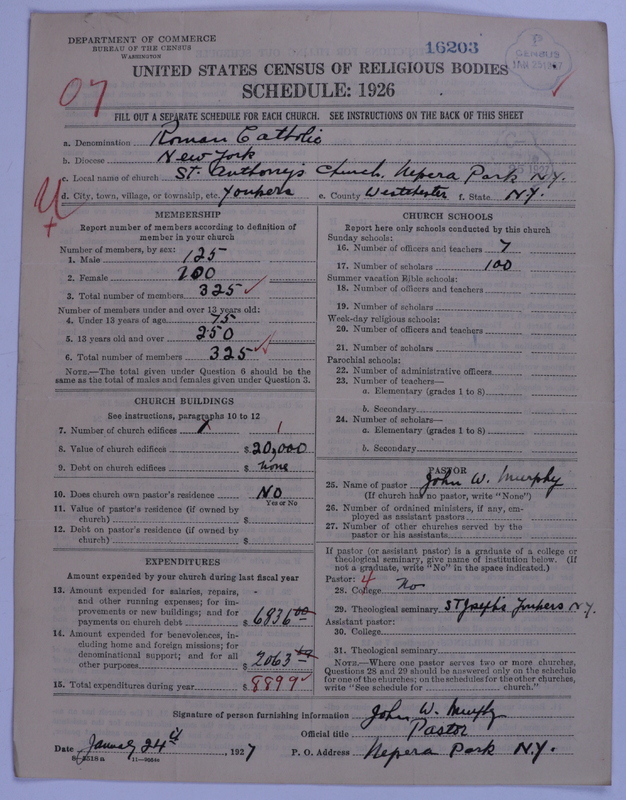 DEPARTMENT OF COMMERCE
BUREAU OF THE CENSUS
WASHINGTON
16203
P
CENSUS
UNITED STATES CENSUS OF RELIGIOUS BODIES
SCHEDULE: 1926
07
FILL OUT A SEPARATE SCHEDULE FOR EACH CHURCH. SEE INSTRUCTIONS ON THE BACK OF THIS SHEET
a. Denomination Roman Catholic
b. Diocese New York
c. Local name of church St. Anthony's Church, Nepera Park N.Y.
d. City, town, village, or township, etc. Yonkers e. County Westchester f. State N.Y.
MEMBERSHIP
Report number of members according to definition of member in your church
Number of members, by sex:
1. Male 125
2. Female 200
3. Total number of members 325
Number of members under and over 13 years old:
4. Under 13 years of age 75
5. 13 years old and over 250
6. Total number of members 325
NOTE.—The total given under Question 6 should be the same as the total of males and females given under Question 3.
CHURCH BUILDINGS
See instructions, paragraphs 10 to 12
7. Number of church edifices 1 1
8. Value of church edifices $ 20,000
9. Debt on church edifices $ none
10. Does church own pastor's residence NO
Yes or No
11. Value of pastor's residence (if owned by church) $
12. Debt on pastor's residence (if owned by church) $
EXPENDITURES
Amount expended by your church during last fiscal year
13. Amount expended for salaries, repairs, and other running expenses; for improvements or new buildings; and for payments on church debt $ 6836 00
14. Amount expended for benevolences, including home and foreign missions; for denominational support; and for all other purposes $ 2063
15. Total expenditures during year $ 8899
CHURCH SCHOOLS
Report here only schools conducted by this church
Sunday schools:
16. Number of officers and teachers 7
17. Number of scholars 100
Summer vacation Bible schools:
18. Number of officers and teachers
19. Number of scholars
Week-day religious schools:
20. Number of officers and teachers
21. Number of scholars
Parochial schools:
22. Number of administrative officers
23. Number of teachers—
a. Elementary (grades 1 to 8)
b. Secondary
24. Number of scholars—
a. Elementary (grades 1 to 8)
b. Secondary
PASTOR
25. Name of pastor John W. Murphy
(If church has no pastor, write "None")
26. Number of ordained ministers, if any, employed as assistant pastors
27. Number of other churches served by the pastor or his assistants
If pastor (or assistant pastor) is a graduate of a college or theological seminary, give name of institution below. (If not a graduate, write "No" in the space indicated.)
Pastor: 4
28. College No
29. Theological seminary St Joseph's Yonkers N.Y.
Assistant pastor:
30. College
31. Theological seminary
NOTE.—Where one pastor serves two or more churches, Questions 28 and 29 should be answered only on the schedule for one of the churches; on the schedules for the other churches, write "See schedule for church."
Signature of person furnishing information John W. Murphy
Official title Pastor
Date January 24th, 1927 P. O. Address Nepera Park N.Y.
8—2518a 11—9984a